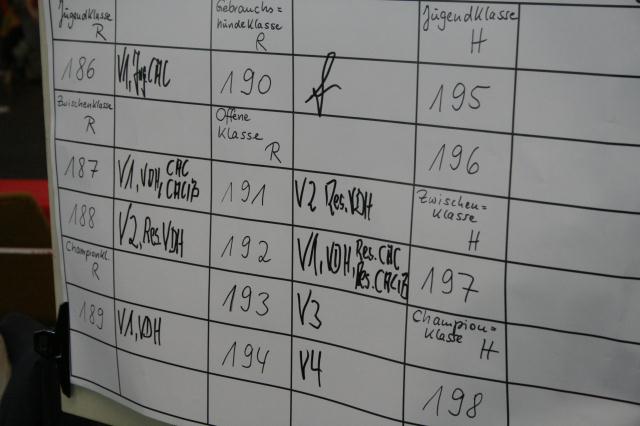 Jugendklasse
R
186 V1, Jug.CAC
Zwischenklasse
R
187 V1, VDH, CAC
CACIB
188 V2, Res.VDH
Championkl.
R
189 V1, VDH
Gebrauchs=
hundeklasse
R
190
Offene
Klasse
R
191 V2 Res.VDH
192 V1, VDH, Res.CAC
Res.CACIB
193 V3
194 V4
Jugendklasse
H
195
196
Zwischen=
klasse
H
197
Champion=
klasse
H
198